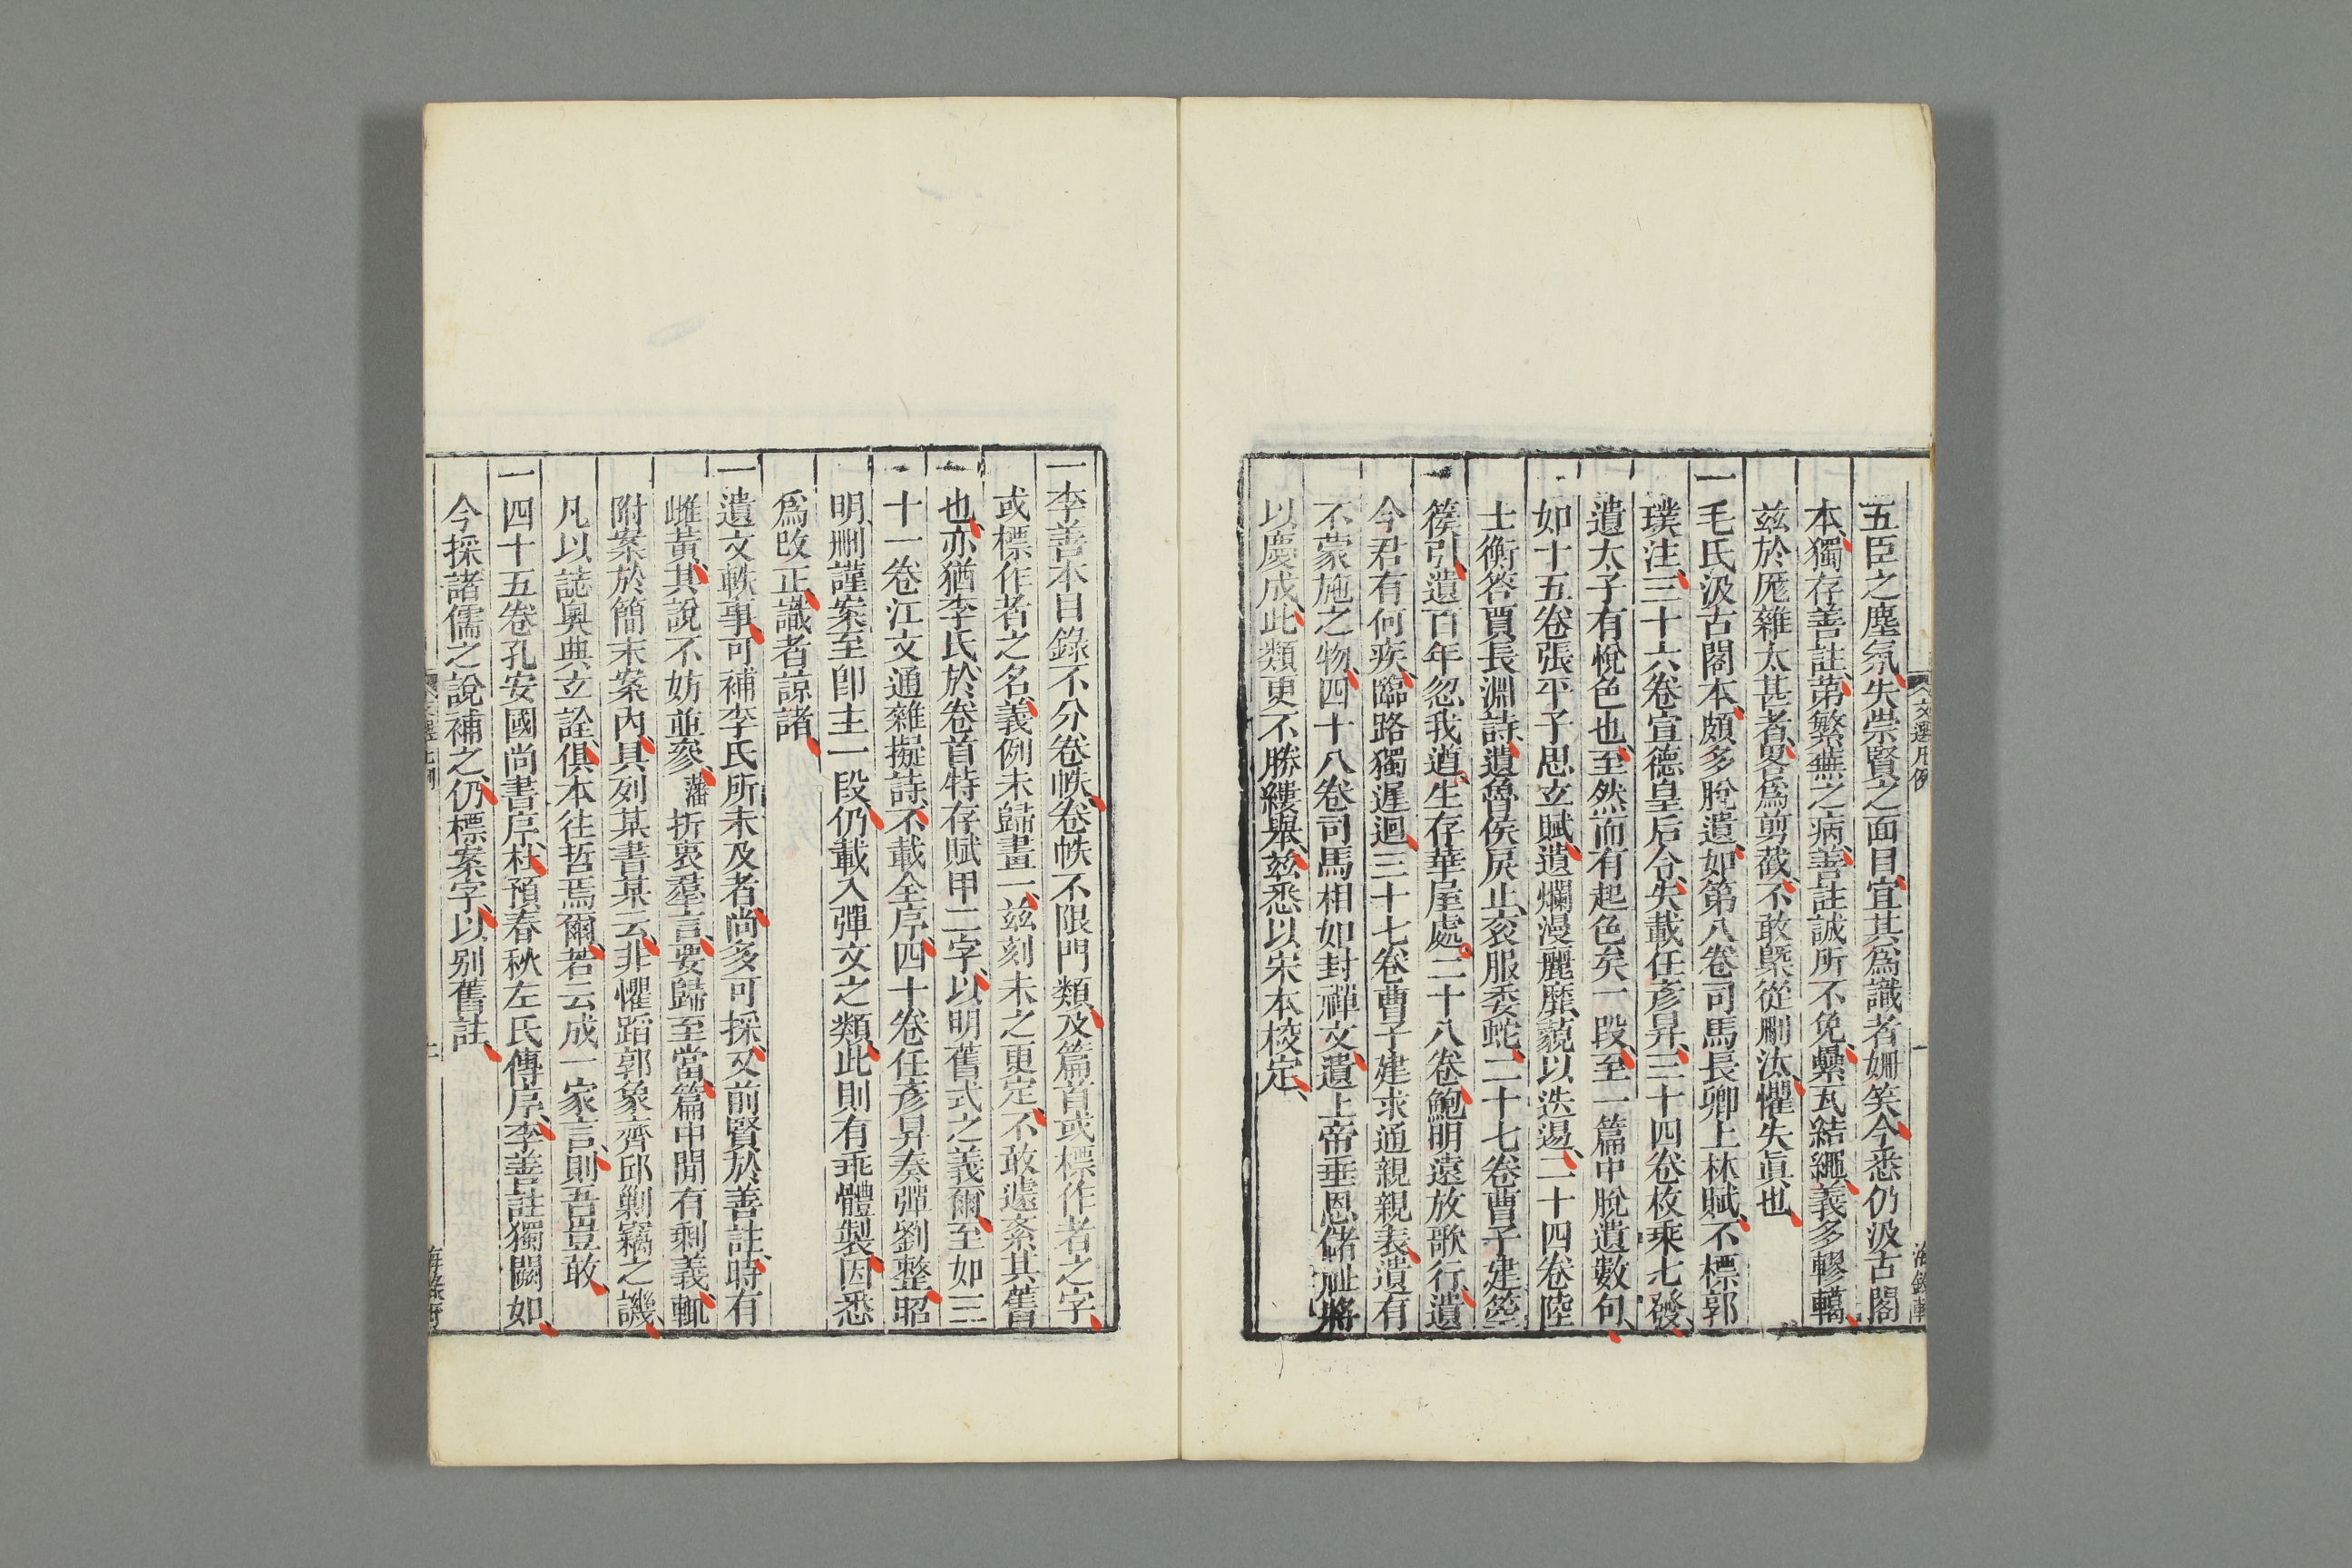 五臣之塵氛失崇賢之面目宜其為識者姍笑今悉仍汲古閣
本獨存善註第繁蕪之病善註誠所不免纍瓦結繩義多轇轕
兹於厖雜太甚者畧爲剪截不敢槩從刪汰懼失眞也
一毛氏汲古閣本頗多脫遺如第八卷司馬長卿上林賦不標郭
璞注三十六卷宣德皇后令失載任彥昇三十四卷枚乘七發
遺太子有悅色也至然而有起色矣一段至一篇中脫遺數句
如十五卷張平子思立賦遺爛漫麗靡藐以迭逷二十四卷陸
士衡答賈長淵詩遺魯侯戾止衮服委蛇二十七卷曹子建箜
篌引遺百年忽我遒生存華屋處二十八卷鮑明遠放歌行遺
今君有何疾臨路獨遲迴三十七卷曹子建求通親親表遺有
不蒙施之物四十八卷司馬相如封禪文遺上帝垂恩儲祉將
以慶成此類更不勝縷舉兹悉以宋本校定
文選凡例
一
海錄軒
一李善本目錄不分卷帙卷帙不限門類及篇首或標作者之字
或標作者之名義例未歸畫一兹刻未之更定不敢遽紊其舊
也亦猶李氏於卷首特存賦甲二字以明舊式之義爾至如三
十一卷江文通雜擬詩不載全序四十卷任彥昇奏彈劉整昭
明刪謹案至卽主一段仍載入彈文之類此則有乖體製因悉
爲改正識者諒諸
一遺文軼事可補李氏所未及者尚多可採又前賢於善註時有
雌黃其說不妨並參藩折衷羣言要歸至當篇中閒有剩義輒
附案於簡末案內具列某書某云非懼蹈郭象齊邱剿竊之譏
凡以誌奧典立詮俱本往哲焉爾若云成一家言則吾豈敢
一四十五卷孔安國尚書序杜預春秋左氏傳序李善註獨闕如
今採諸儒之說補之仍標案字以別舊註